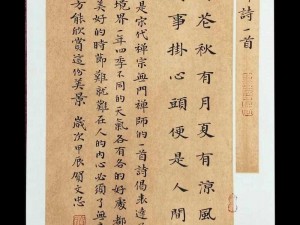 詩一首
花秋有月夏有涼風
事掛心頭便是人間
是宋代禪宗無門禪師的一首詩偈表達
境界一年四季不同的天氣各有各的好處都
美好的時節難就難在人的內心必須了無
方能欣賞這份美景 歲次甲辰 文忠